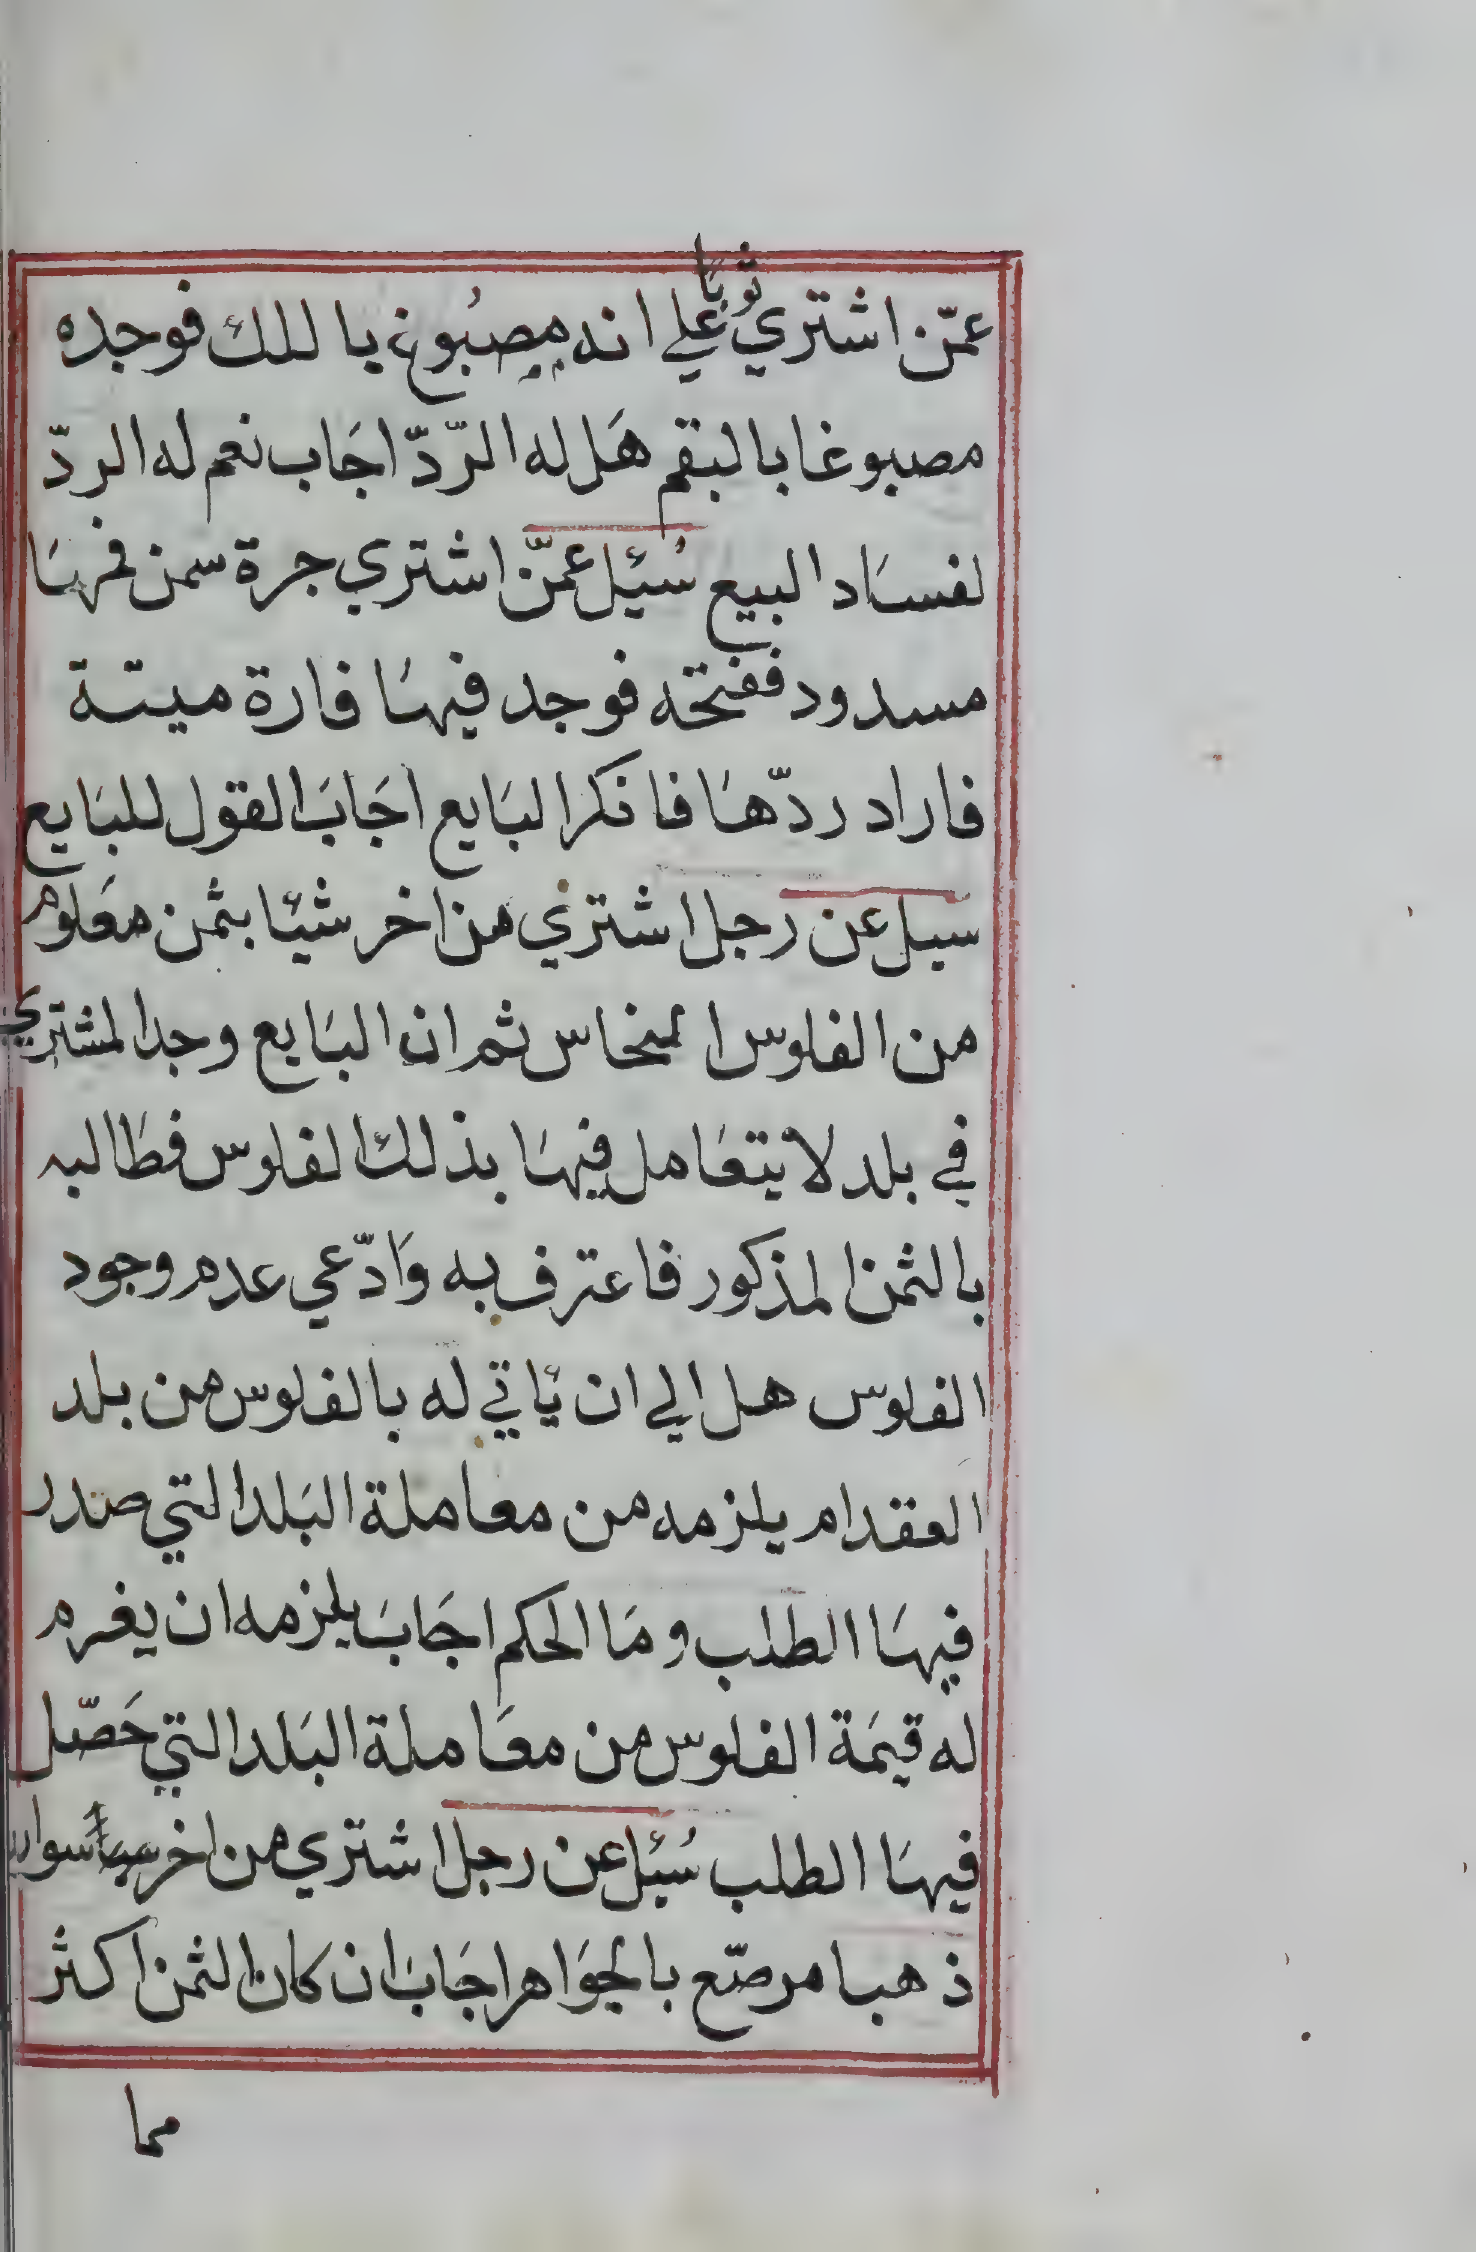 عمّن اشتري ثوبا علي انه مصبُوغ باللك فوجده
مصبوغا بالبقم هَل له الرّدّ اجَاب نعم له الردّ
لفسَاد البيع سُئيل عمّن اشتري جرة سمن فمهَا
مسدود ففتحه فوجد فيهَا فارة ميتة
فاراد ردّهَا فانكر البَايع اجَابَ القول للبَايع
سَيل عن رجل اشتري من اخر شيئا بثمن معَلوم
من الفلوس النحاس ثم ان البَايع وجد المشتري
في بلد لا يتعَامل فيهَا بذلك الفلوس فطَالبه
بالثمن المذكور فاعترف به وَادّعي عدم وجود
الفلوس هل الي ان يَاتي له بالفلوس من بلد
العقد ام يلزمه من معاملة البَلد التي صدر
فيهَا الطلب ومَا الحكم اجَابَ يلزمه ان يغرم
له قيمَة الفلوس من معَاملة البَلد التي حَصّل
فيهَا الطلب سُئيل عن رجل اشتري من اخر سوار
ذهبا مرصّع بالجَوَاهر اجَابَ ان كَان الثمن اكثر
مما